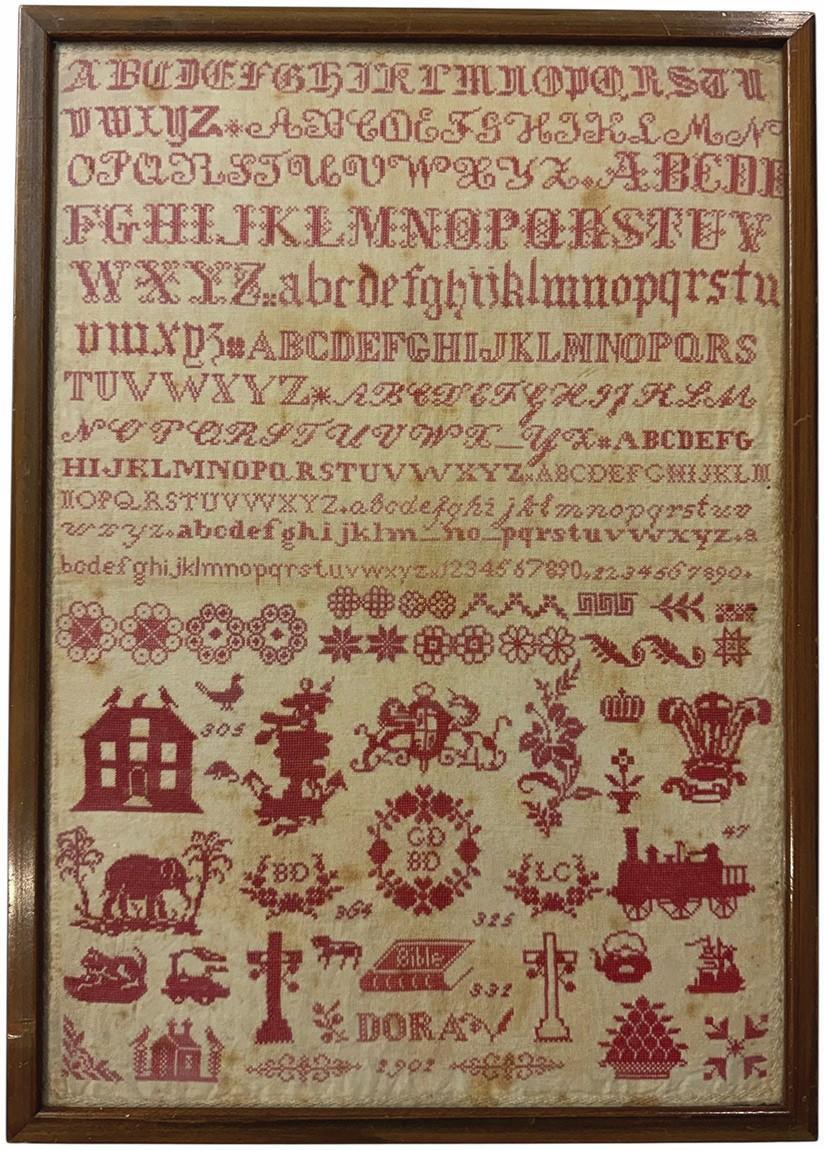 ABCDEFGHIKLMNOPQRSTU
VWXYZ*ABCDEFGHIKLMN
OPQRSTUVWXYZ.ABCDE
FGHIJKLMNOPQRSTUV
WXYZ.abcdefghijklmnopqrstu
vwxyz*ABCDEFGHIJKLMNOPQRS
TUVWXYZ*ABCDEFGHIJKLM
NOPQRSTUVWX_YZ*ABCDEFG
HIJKLMNOPQRSTUVWXYZ.ABCDEFGHIJKLM
NOPQRSTUVWXYZ.abcdefghijklmnopqrstuv
wxyz.abcdefghijklm_no_pqrstuvwxyz.a
bcdefghijklmnopqrstuvwxyz.1234567890.1234567890.
305
GD
47
BD BD LC
364 325
Bible
331
DORA
1902